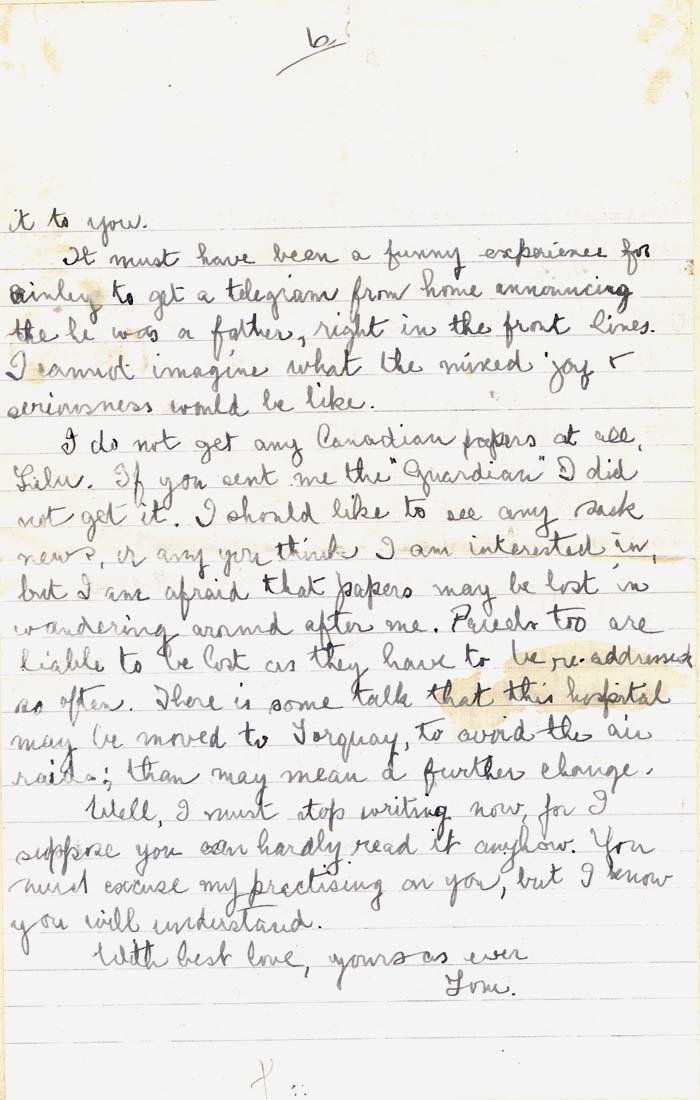 6
it to you.
It must have been a funny experience for
to get a telegram from home announcing
the he was a father, right in the front lines.
I cannot imagine what the mixed joy &
seriousness would be like.
I do not get any Canadian papers at all,
If you sent me the "Guardian" I did
not get it. I should like to see any Sask
news, or any you think I am interested in,
but I am afraid that papers may be lost in
wandering around after me. Parcels too are
liable to be lost as they have to be re-addressed
so often. There is some talk that this hospital
may be moved to Torquay, to avoid the air
raids; than may mean a further change.
Well, I must stop writing now, for I
suppose you can hardly read it anyhow. You
must excuse my practising on you, but I know
you will understand.
With best love, yours as ever
Tom.